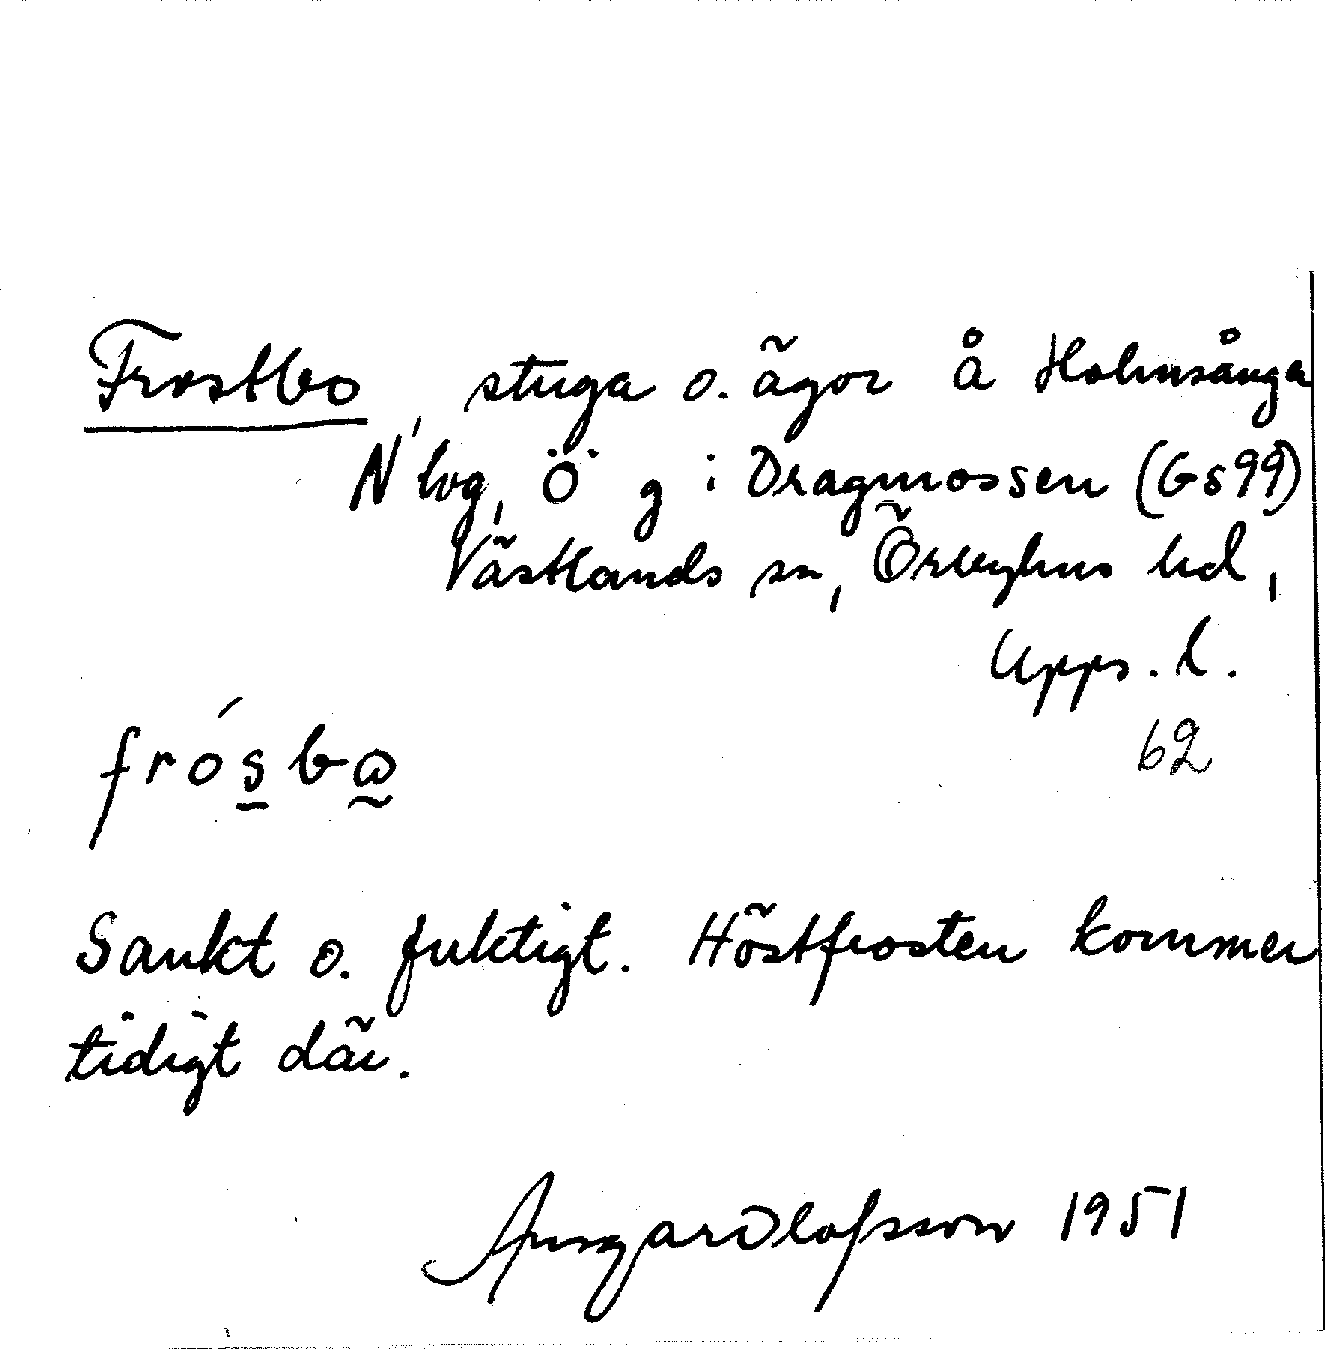 Frostbo, stuga o. ägor å Holmsånga
N log, Ö g i Dragmossen (Gs99)
Västlands sn, Örbyhus hd,
Upps. l.
62
frósbω
Sankt o. fuktigt. Höstfrosten kommer
tidigt där.
Ansgar Olofsson 1951